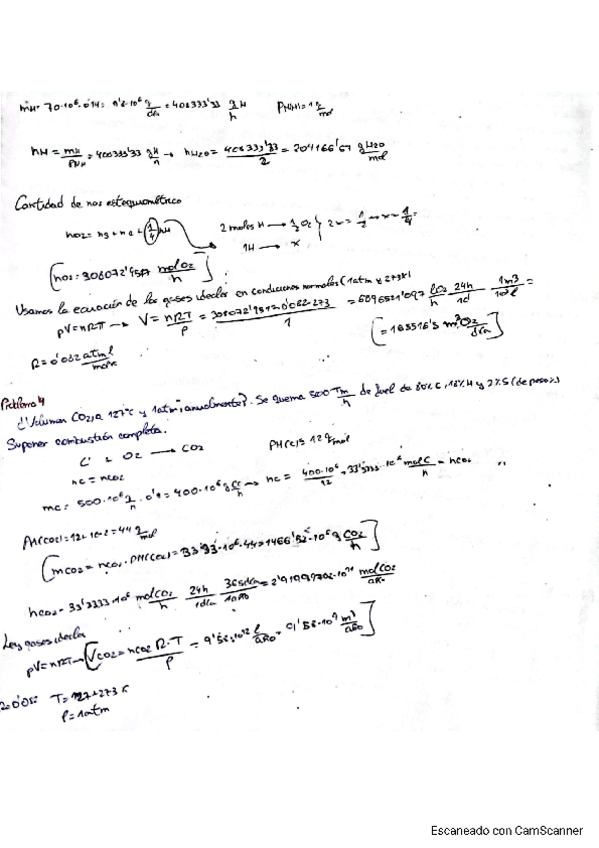 mH= 70·10⁶·0'14= 9'8·10⁶ g/día = 408333'33 gH/h PM(H)=1 g/mol
nH = mH/PMH = 408333'33 gH/h → nH2O = 408333'33/2 = 204166'67 gH2O/mol
Cantidad de nos estequiométrico
nO2 = ns + nc + (1/4) nH
2 moles H → 1/2 O2
1H → x
2x = 1/2 → x = 1/4
[nO2 = 308072'9517 mol O2/h]
Usamos la ecuación de los gases ideales en condiciones normales (1atm y 273K)
pV=nRT → V = nRT/P = 308072'951·0'082·273/1 = 6896521'097 lO2/h · 24h/1d · 1m³/10³l =
[= 165516'5 m³O2/día]
R=0'082 atm l/mol K
Problema 4
¿Volumen CO2, a 127ºC y 1atm, anualmente?. Se quema 500 Tm/h de fuel de 80% C, 18% H y 2% S (de peso).
Suponer combustión completa.
C + O2 → CO2 PM(C)= 12 g/mol
nc = nCO2
mc= 500·10⁶ g/h · 0'8 = 400·10⁶ gC/h → nc = 400·10⁶/12 = 33'3333·10⁶ mol C/h = nCO2
PM(CO2)=12+16·2=44 g/mol
[mCO2 = nCO2 · PM(CO2)= 33'33·10⁶·44=1466'52·10⁶ g CO2/h]
nCO2= 33'3333·10⁶ mol CO2/h · 24h/1día · 365día/1año = 2'91999702·10¹¹ mol CO2/año
Ley gases ideales
pV=nRT → [VCO2 = nCO2 R·T/P = 9'58·10¹² l/año = 9'58·10⁹ m³/año]
T= 127+273 K
P=1atm
Escaneado con CamScanner